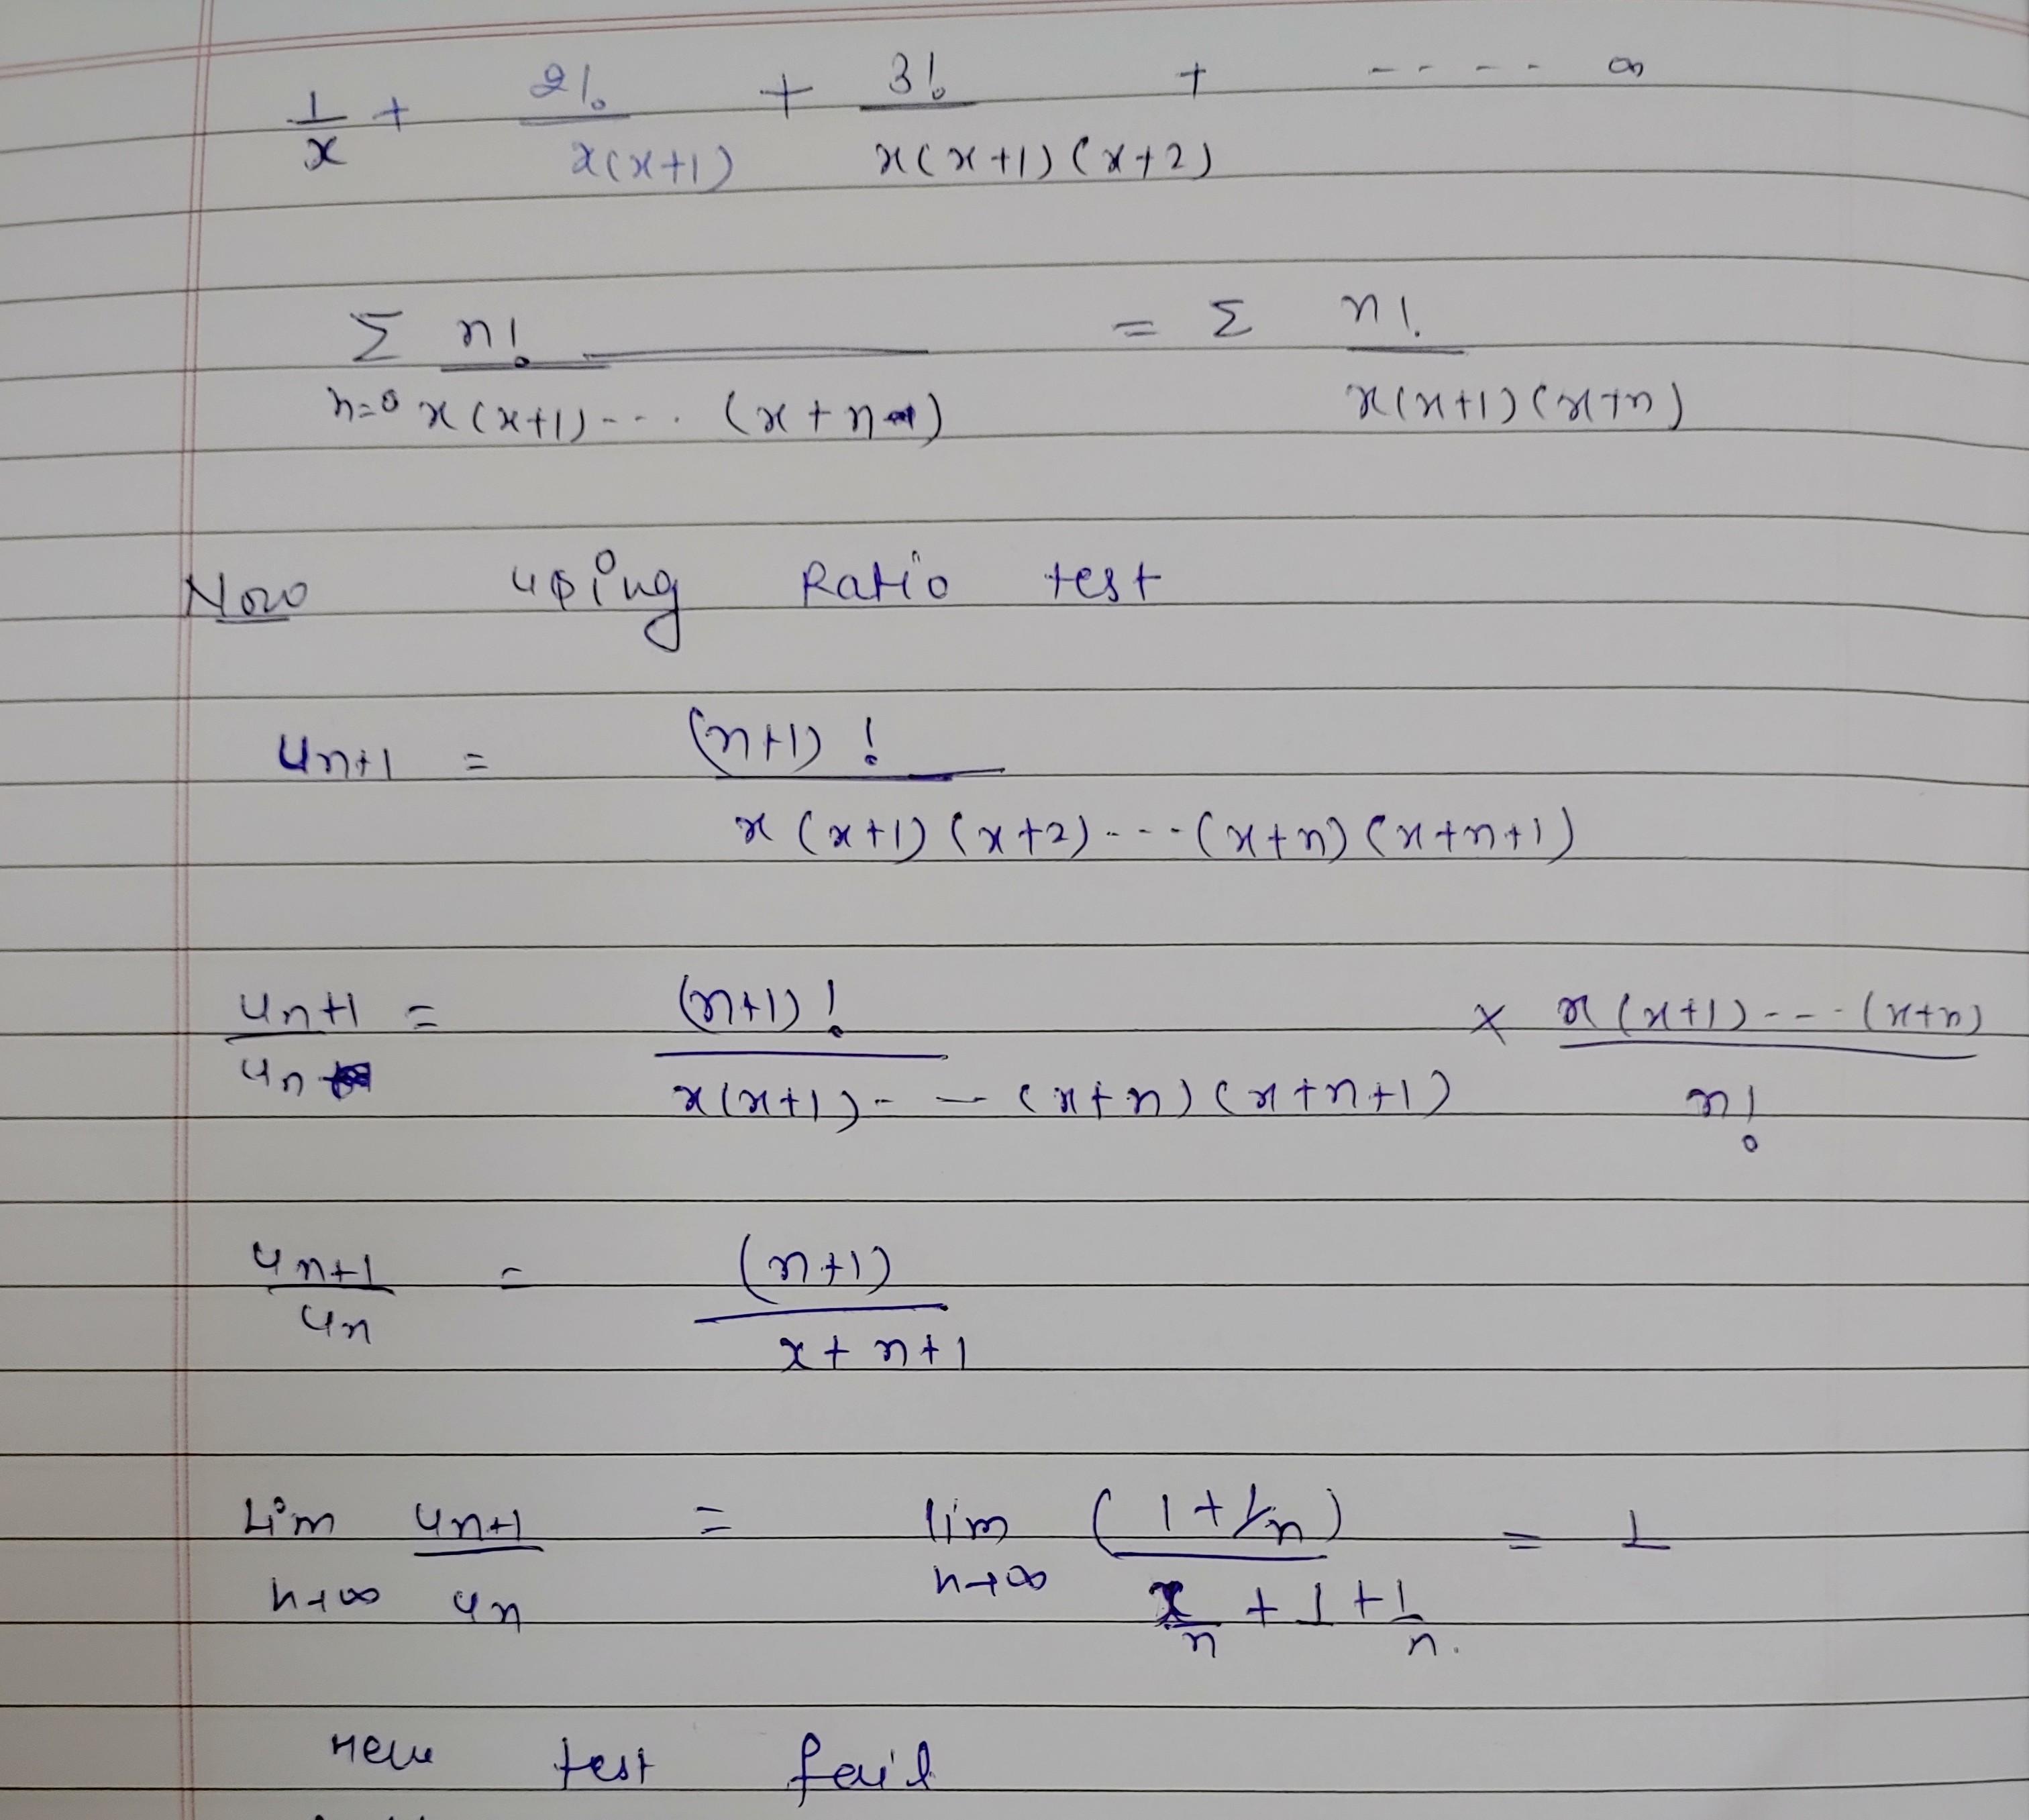 1/x + 2!/x(x+1) + 3!/x(x+1)(x+2) + ----- ∞
Σ n=0 n!/x(x+1)---.(x+n) = Σ n!/x(x+1)(x+n)
Now using Ratio test
Un+1 = (n+1)!/x(x+1)(x+2)----(x+n)(x+n+1)
Un+1/Un = (n+1)!/x(x+1)---(x+n)(x+n+1) × x(x+1)----(x+n)/n!
Un+1/Un = (n+1)/x+n+1
Lim n→∞ Un+1/Un = lim n→∞ (1+1/n)/x/n+1+1/n. = 1
test fail